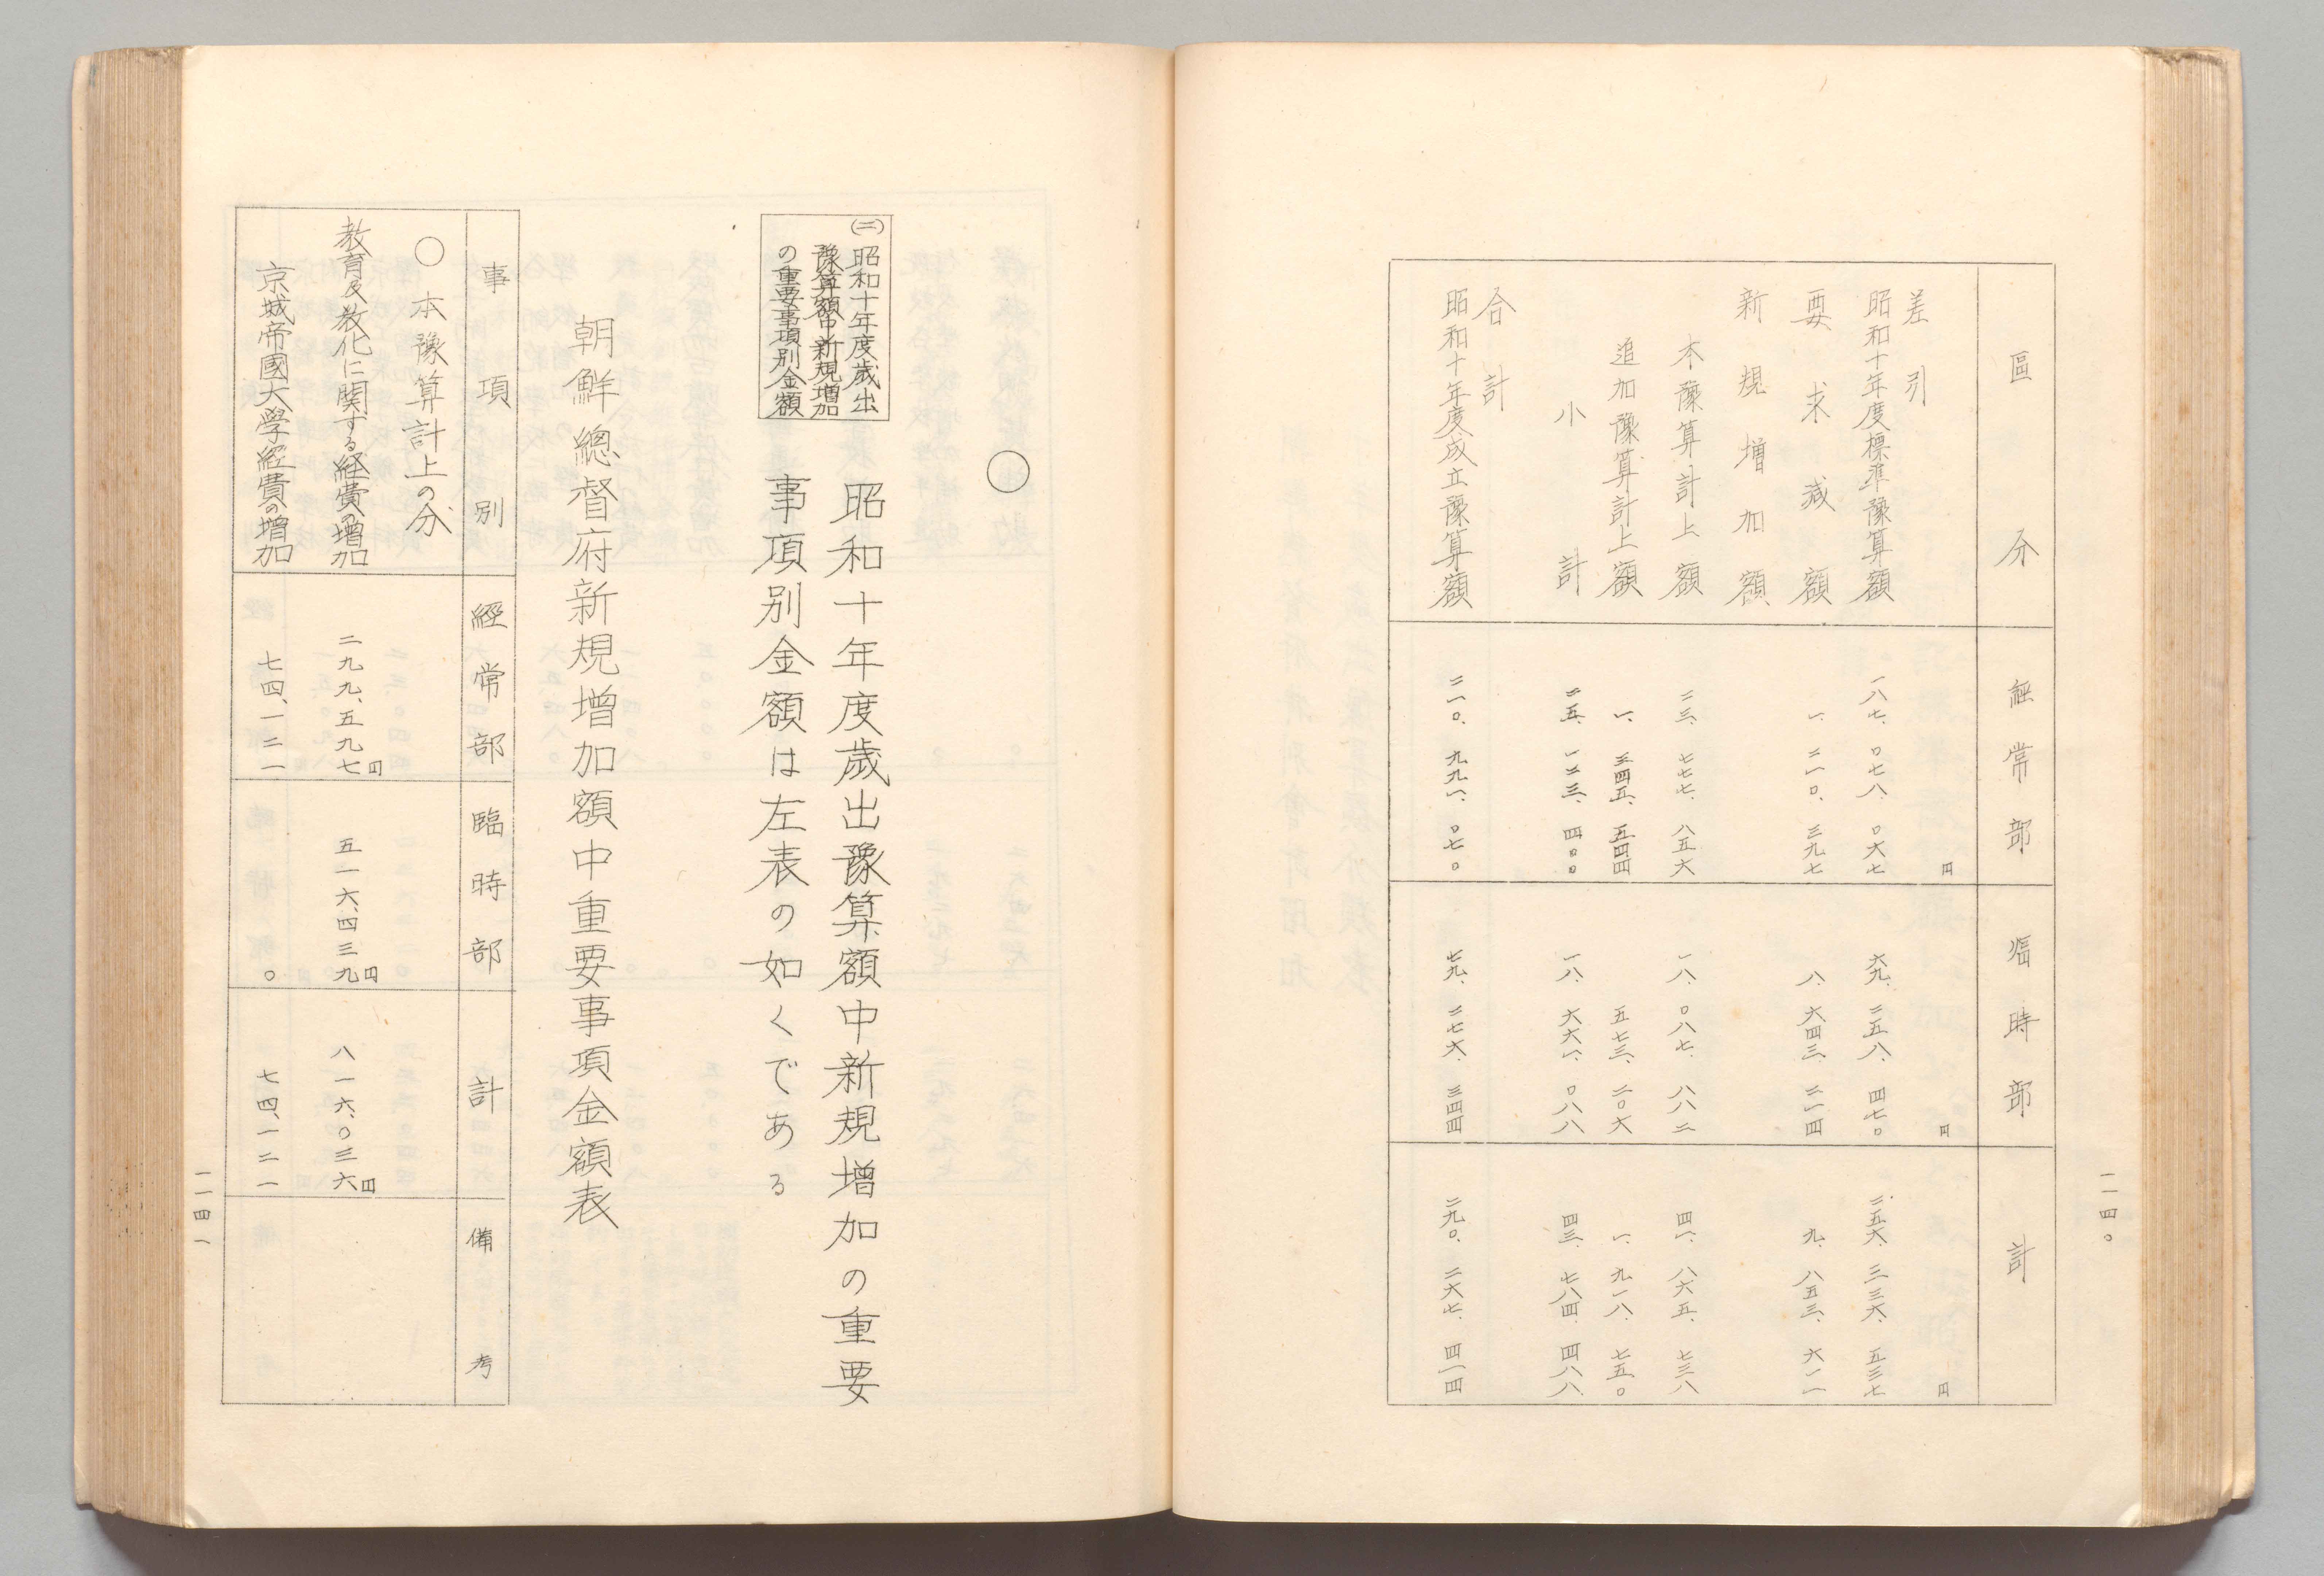 一一四〇
區分 經常部 臨時部 計
円 円 円
差引
昭和十年度標準豫算額 一八七、〇七八、〇六七 六九、二五八、四七〇 二五六、三三六、五三七
要求減額 一、二一〇、三九七 八、六四三、二一四 九、八五三、六一一
新規増加額
本豫算計上額 二三、七七七、八五六 一八、〇八七、八八二 四一、八六五、七三八
追加豫算計上額 一、三四五、五四四 五七三、二〇六 一、九一八、七五〇
小計 二五、一二三、四〇〇 一八、六六一、〇八八 四三、七八四、四八八
合計
昭和十年度成立豫算額 二一〇、九九一、〇七〇 七九、二七六、三四四 二九〇、二六七、四一四
〇
(二)昭和十年度歳出
豫算額中新規増加
の重要事項別金額
昭和十年度歳出豫算額中新規増加の重要
事項別金額は左表の如くである
朝鮮總督府新規増加額中重要事項金額表
事項別 經常部 臨時部 計 備考
〇本豫算計上の分
教育及教化に関する経費の増加 二九九、五九七円 五一六、四三九円 八一六、〇三六円
京城帝國大学経費の増加 七四、一二一 〇 七四、一二一
一一四一